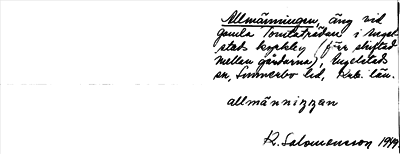 Allmänningen, äng vid
gamla Tomtaträden i Angel-
stads kyrkby (förr skiftad
mellan gårdarna), Angelstads
sn, Sunnerbo hd, Krb. län.
allmänniŋŋan
R. Salomonsson 1949